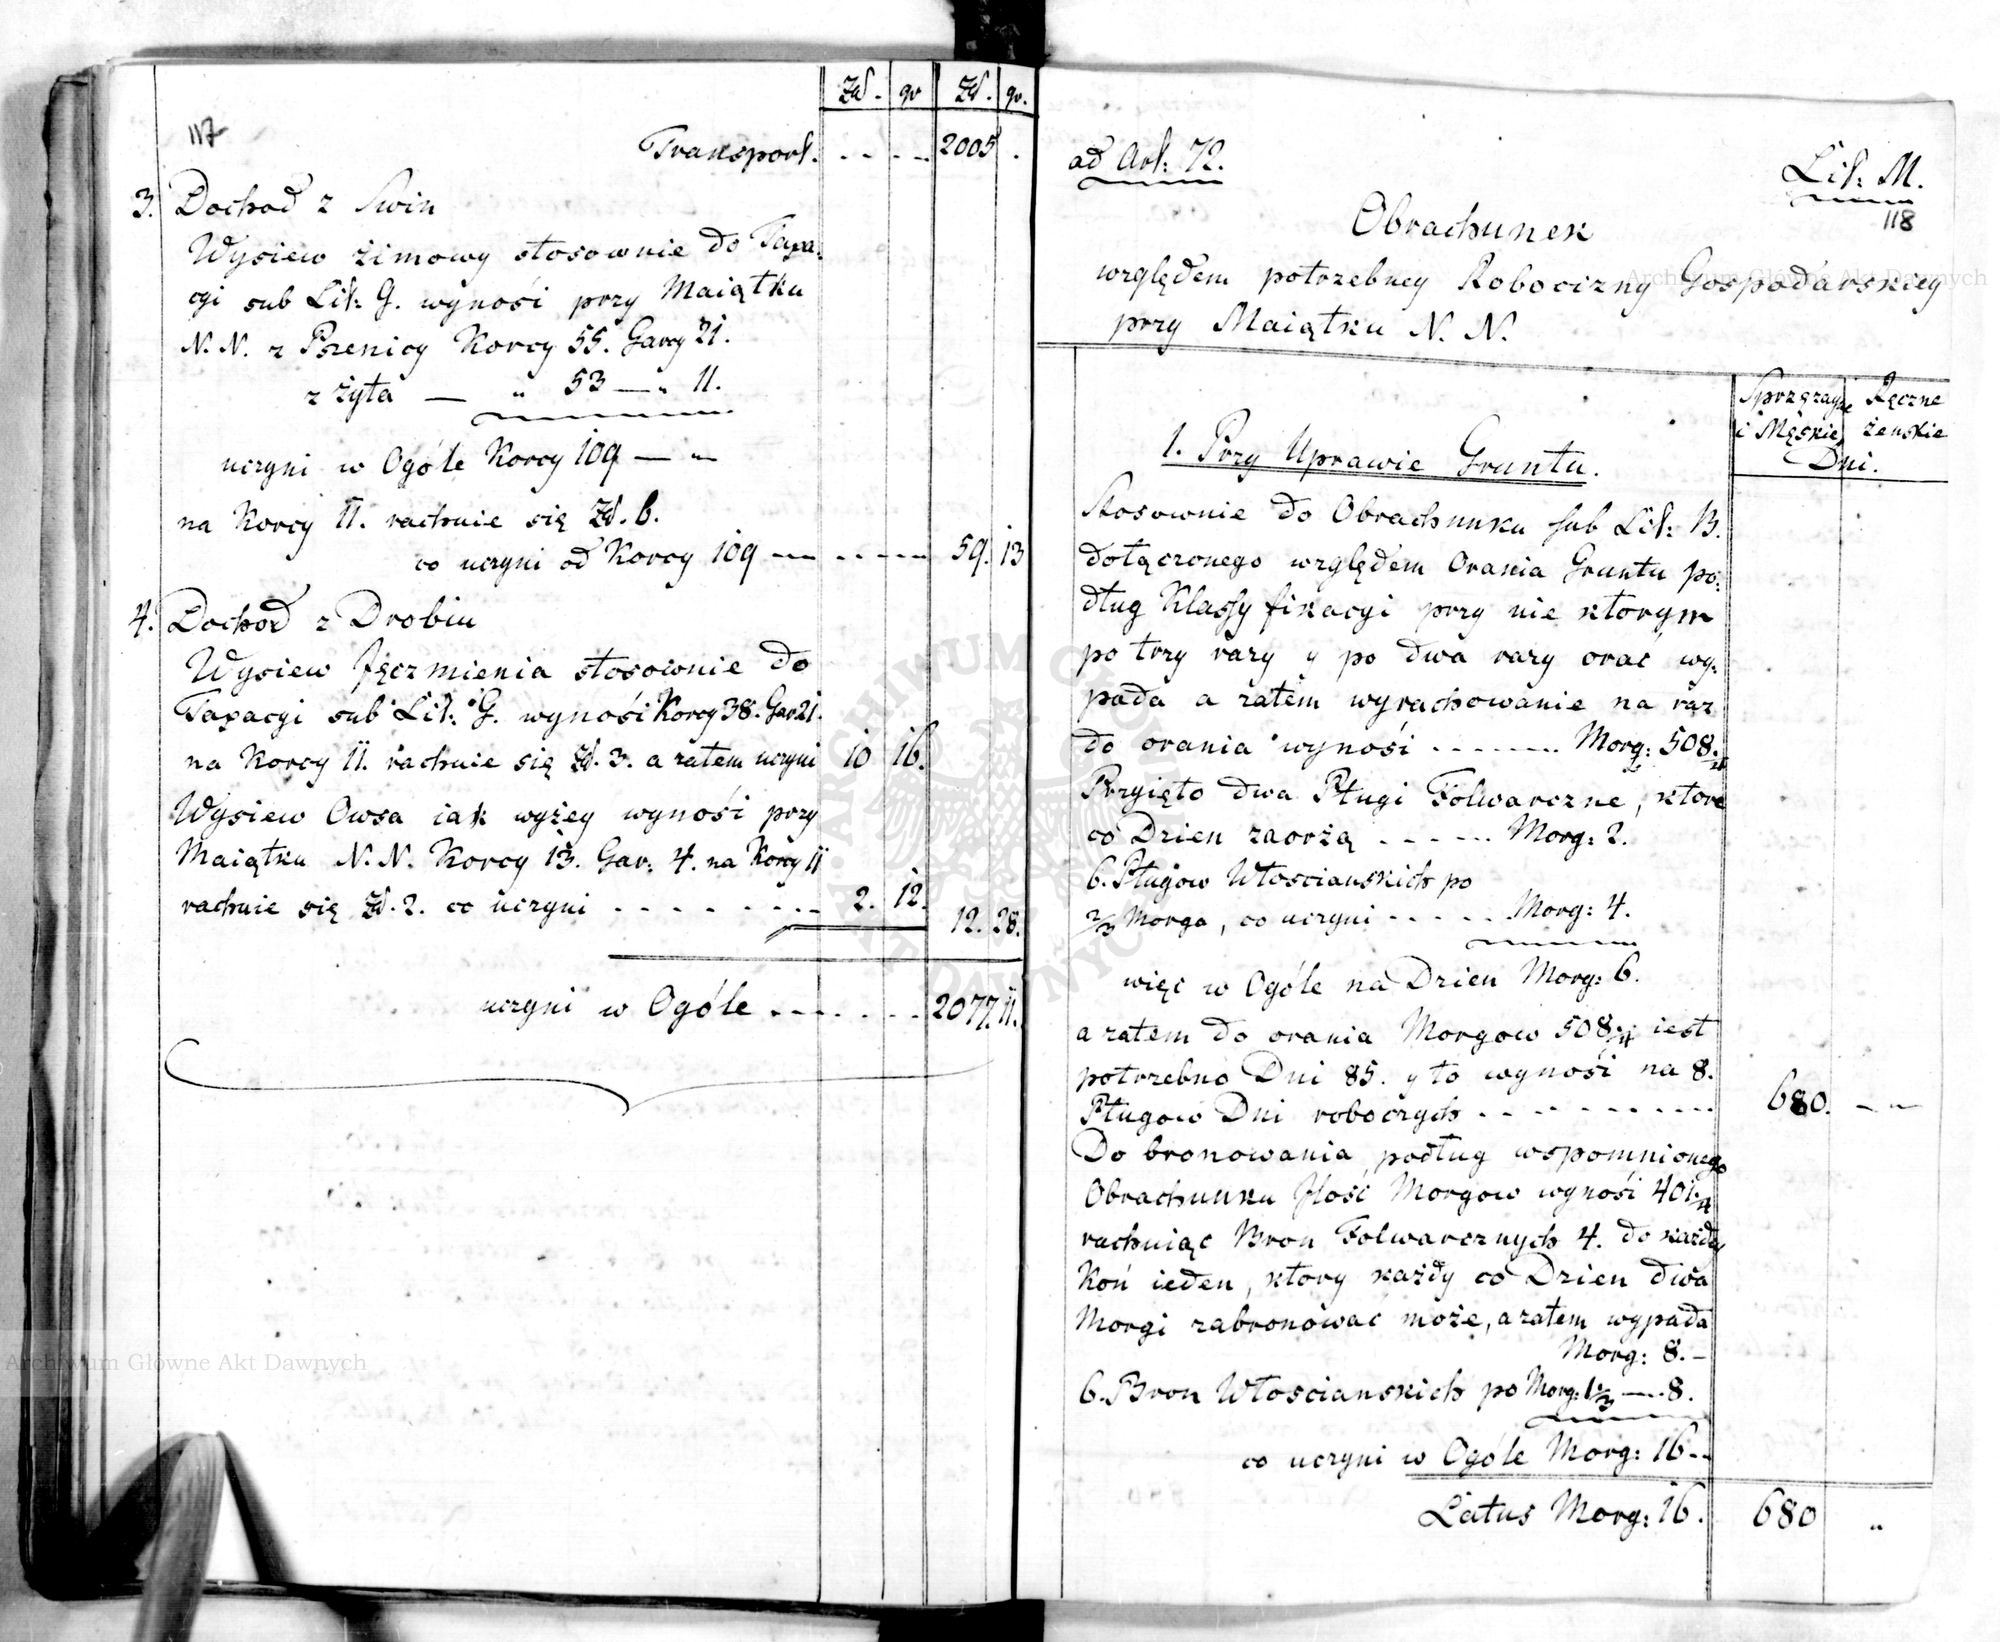 Zł. gr Zł. gr.
117
Transport. 2005 .
3. Dochod z Swin
Wysiew zimowy stosownie do Taxa-
cyi sub Lit: G. wynośi przy Maiątku
N. N. z Pszenicy Korcy 55. Garcy 21.
z żyta — " 53 — " 11.
uczyni w Ogóle Korcy 109 — "
na Korcy 11. rachuie się Zł. 6.
co uczyni od Korcy 109 59. 13
4. Dochod z Drobiu
Wysiew Jęczmienia stosownie do
Taxacyi sub Lit: G. wynośi Korcy 38. Gar 21.
na Korcy 11. rachuie się Zł. 3. a zatem uczyni 10 16.
Wysiew Owsa iak wyżey wynośi przy
Maiątku N. N. Korcy 13. Gar: 4. na Korcy 11
rachuie się Zł. 2. co uczyni 2. 12.
12. 28.
uczyni w Ogóle 2077. 11.
ad Art: 72.
Lit: M.
118
Obrachunek
względem potrzebney Robocizny Gospodarskiey
przy Maiątku N. N.
Sprzęzayne Ręczne
i Męskie żenskie
Dni.
1. Przy Uprawie Gruntu.
Stosownie do Obrachunku sub Lit: B.
dołączonego względem Orania Gruntu po-
dług Klassyfikacyi przy nie ktorym
po trzy razy y po dwa razy orac wy-
pada a zatem wyrachowanie na raz
do orania wynośi Morg: 508.
Przyięto dwa Pługi Folwarczne, ktore
co Dzien zaorżą Morg: 2.
6. Pługow Włoscianskich po
2/3 Morga, co uczyni Morg: 4.
więc w Ogóle na Dzien Morg: 6.
a zatem do orania Morgow 508 iest
potrzebno Dni 85. y to wynośi na 8.
Pługow Dni roboczych 680. — "
Do bronowania podług wspomnionego
Obrachunku Jlosć Morgow wynośi 401
rachuiąc Bron Folwarcznych 4. do każdey
Koń ieden, ktory każdy co Dzien dwa
Morgi zabronować może, a zatem wypada
Morg: 8. –
6. Bron Włoscianskich po Morg: 1 1/3 — 8.
co uczyni w Ogóle Morg: 16 –
Latus Morg: 16. 680 "
Archiwum Główne Akt Dawnych
Archiwum Główne Akt Dawnych
ARCHIWUM GŁÓWNE AKT DAWNYCH